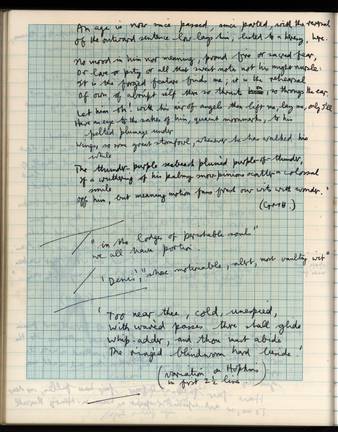 An age is now since passed, since parted, with the reversal
Of the outward sentence low lays him, listed to a heresy, here.
No mood in him nor meaning, proud fire or sacred fear,
Or love or pity or all that sweet notes not his might nursle:
It is the forgèd feature finds me; it is the rehearsal
Of own, of abrupt self there so thrusts on, so throngs the ear.
Let him oh! with his air of angels then lift me, lay me, only I'll
Have an eye to the sakes of him, quaint moonmarks, to his
pelted plumage under
Wings: so some great stormfowl, whenever he has walked his
while
The thunder-purple seabeach plumèd purple-of-thunder,
If a wuthering of his palmy snow-pinions scatter a colossal
smile
Off him, but meaning motion fans fresh our wits with wonder.
(GMH.)
" in the lodges of perishable souls"
we all have portion
'Denis', "whose motionable, alert, most vaulting wit"
' Too near thee, cold,
With waved passes there shall glide
Whip-adder, and thou must abide
The ringed blindworm hard beside.
(variation on Hopkins
in first 2½ lines)